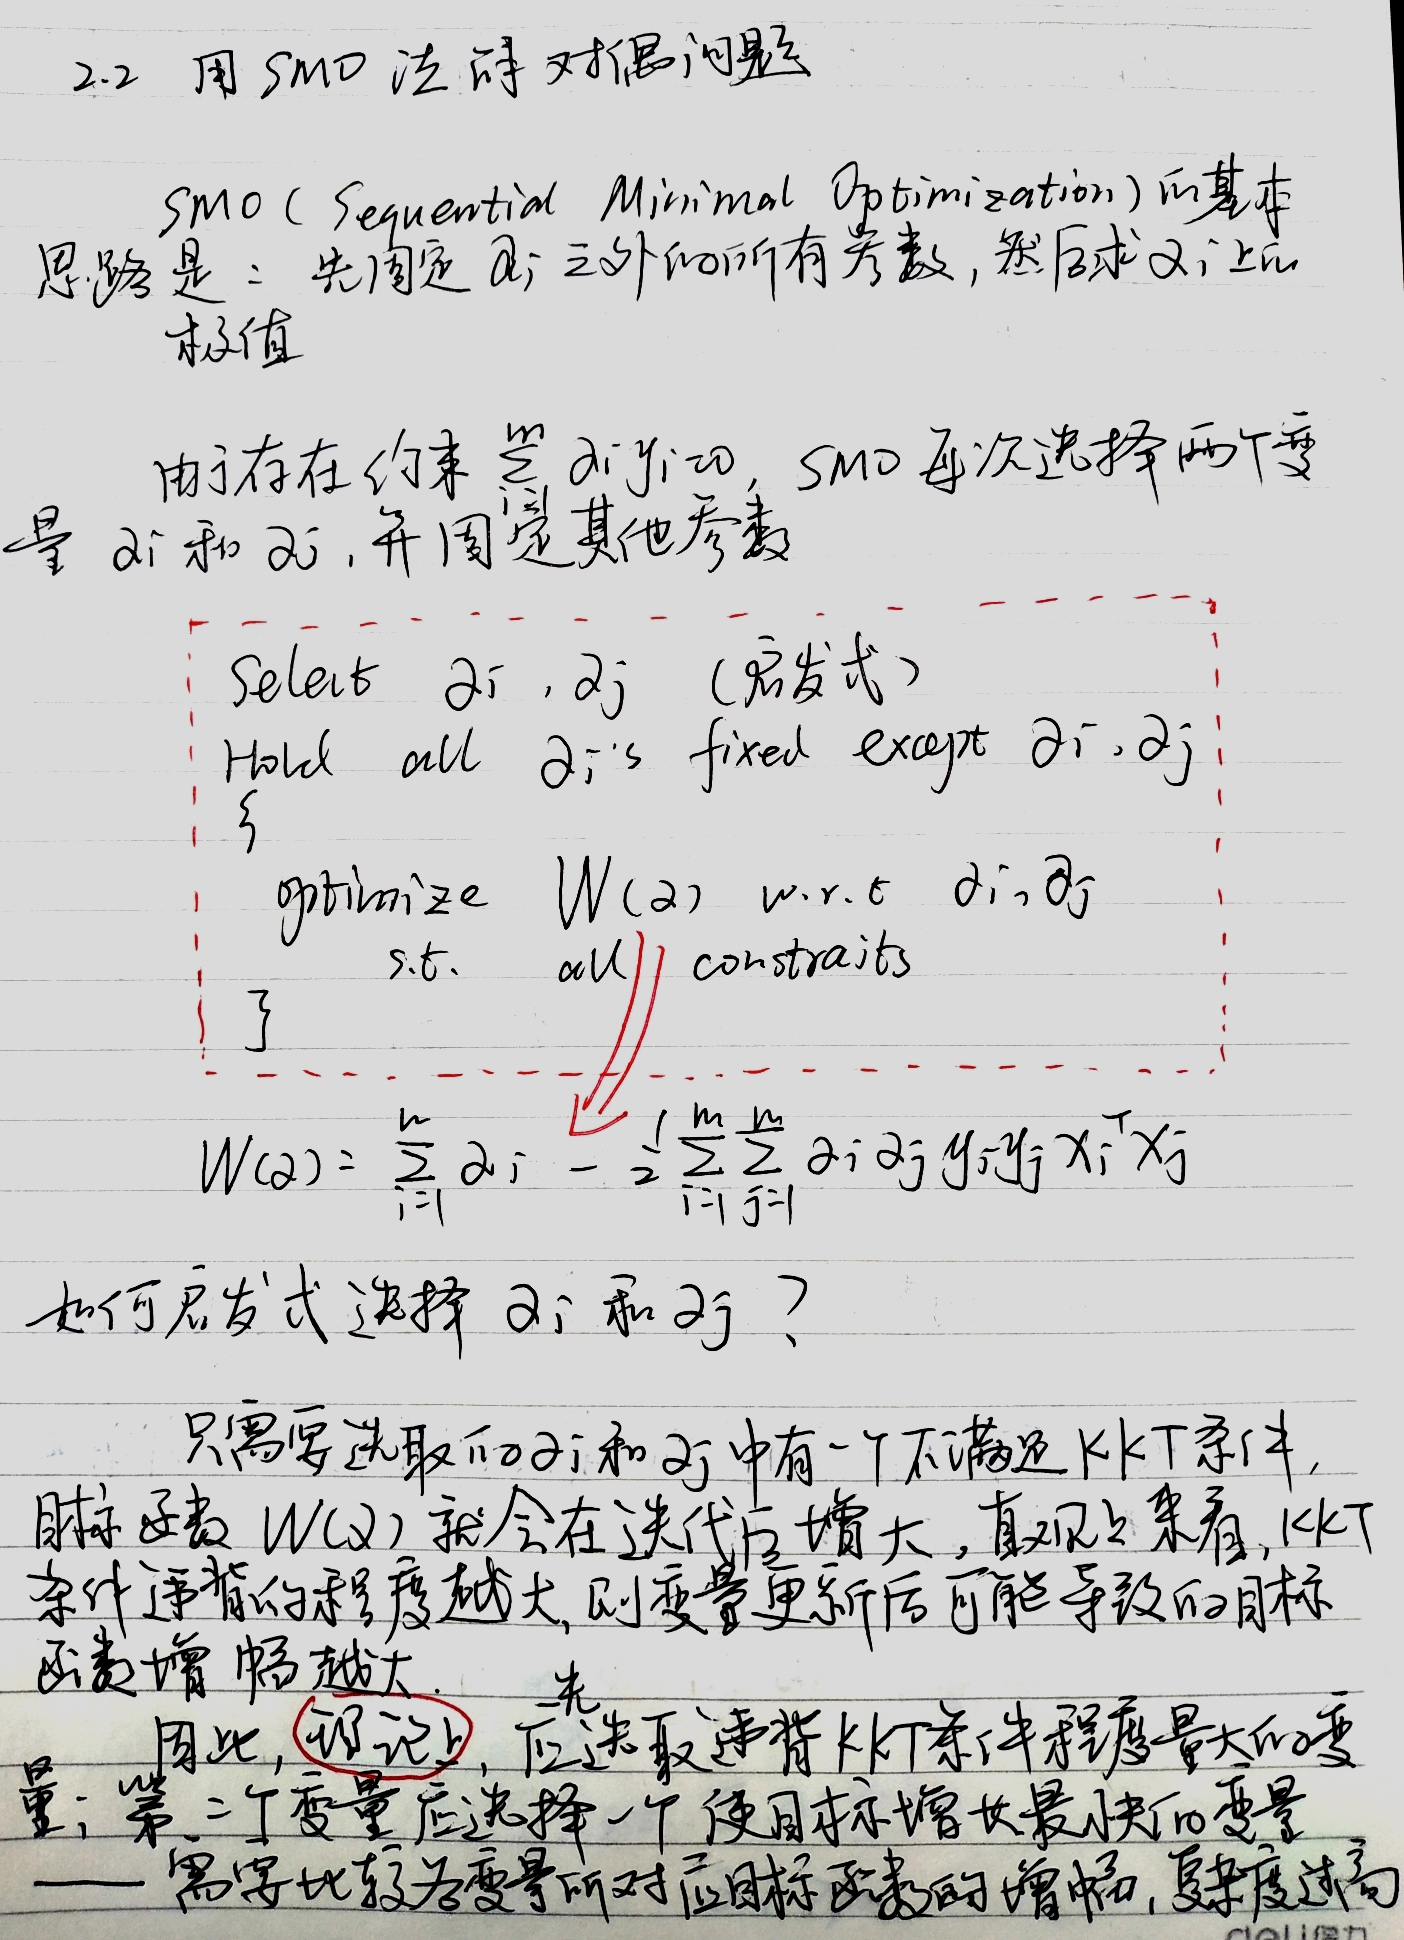 2.2 用SMO法解对偶问题
SMO(Sequential Minimal Optimization)的基本
思路是：先固定αi之外的所有参数,然后求αi上的
极值
由于存在约束 ∑_{i=1}^{m} αiyi=0, SMO每次选择两个变
量 αi 和 αj,并固定其他参数
Select αi,αj (启发式)
Hold all αi's fixed except αi,αj
{
optimize W(α) w.r.t αi,αj
s.t. all constraits
}
W(α)= ∑_{i=1}^{m} αi - 1/2 ∑_{i=1}^{m} ∑_{j=1}^{m} αi αj yi yj xi^T xj
如何启发式选择 αi 和 αj ?
只需要选取的αi和αj中有一个不满足KKT条件,
目标函数 W(α) 就会在迭代后增大,直观上来看,KKT
条件违背的程度越大,则变量更新后可能导致的目标
函数增幅越大.
先
因此,理论上,应选取违背KKT条件程度最大的变
量;第二个变量应选择一个使目标增长最快的变量
——需要比较各变量所对应目标函数的增幅,复杂度过高
deli得力